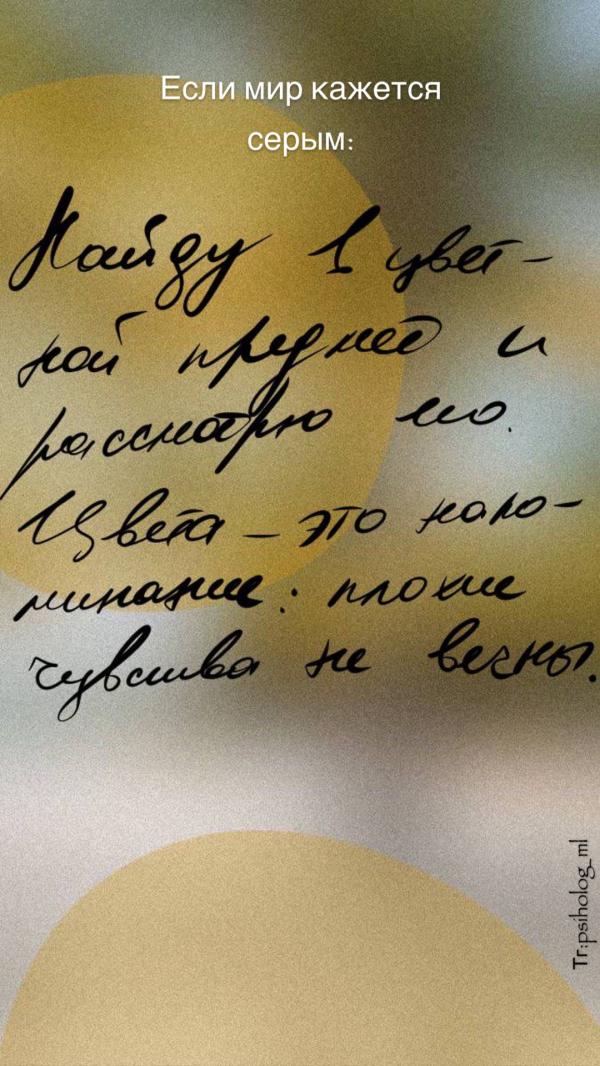 Если мир кажется
серым:
Найду 1 цвет-
ной предмет и
рассмотрю его.
Цвета – это напо-
минание: плохие
чувства не вечны.
Тг:psiholog_ml